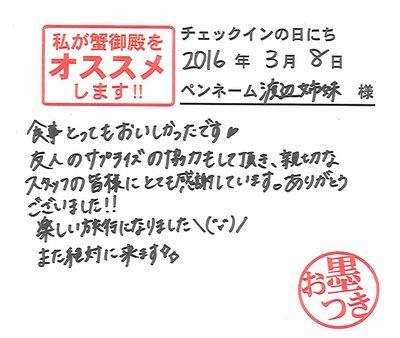 私が蟹御殿を
オススメ
します!!
チェックインの日にち
2016 年 3 月 8 日
ペンネーム 渡辺姉妹 様
食事とってもおいしかったです♥
友人のサプライズの協力もして頂き、親切な
スタッフの皆様にとても感謝しています。ありがとう
ございました!!
楽しい旅行になりました\(ˊᵕˋ)/
また絶対に来ます
お墨つき